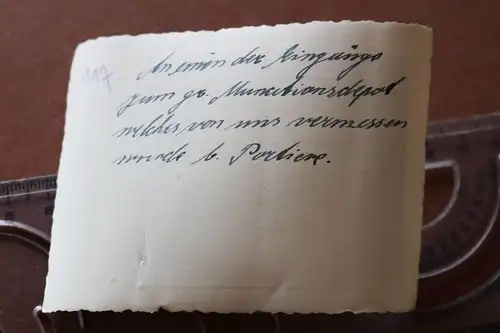 117
An einen der Eingänge
zum gr. Munitionsdepot
welches von uns vermessen
wurde b. Portiere.